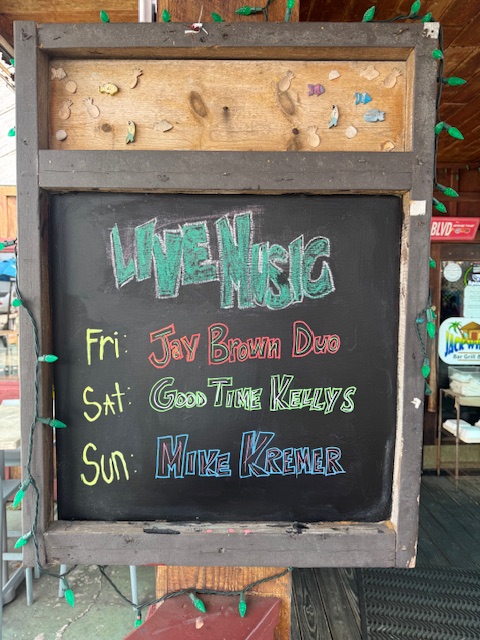 LIVE MUSIC
Fri: Jay Brown Duo
SAt: GOOD TIME KELLYS
Sun: MIKE KREMER
BLVD
Bar Grill &